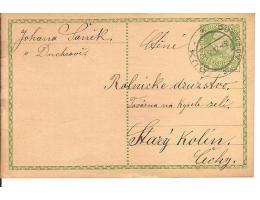 Johana
v
Ctěné
Rolnické družstvo.
Továrna na kyselé zelí.
Starý Kolín.
Čechy.